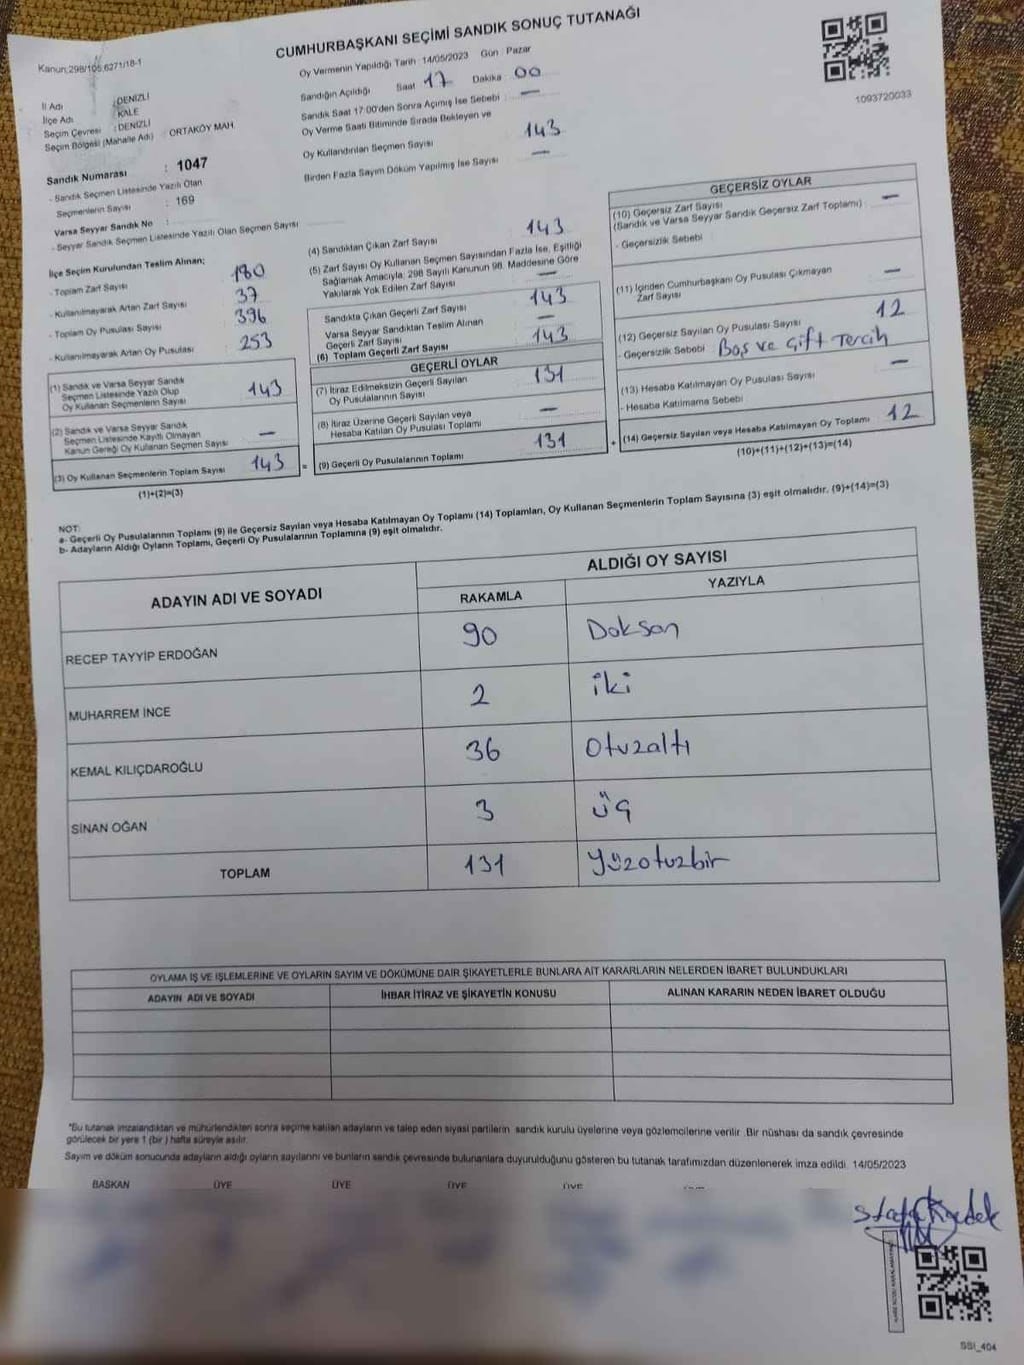 CUMHURBAŞKANI SEÇİMİ SANDIK SONUÇ TUTANAĞI
Kanun;298/105,6271/18-1
1093720033
İl Adı : DENİZLİ
İlçe Adı : KALE
Seçim Çevresi : DENİZLİ
Seçim Bölgesi (Mahalle Adı) : ORTAKÖY MAH.
Sandık Numarası : 1047
- Sandık Seçmen Listesinde Yazılı Olan
Seçmenlerin Sayısı : 169
Varsa Seyyar Sandık No :
- Seyyar Sandık Seçmen Listesinde Yazılı Olan Seçmen Sayısı
Oy Vermenin Yapıldığı Tarih 14/05/2023 Gün Pazar
Sandığın Açıldığı Saat 17 Dakika 00
Sandık Saat 17:00'den Sonra Açımış İse Sebebi : —
Oy Verme Saati Bitiminde Sırada Bekleyen ve
Oy Kullandırılan Seçmen Sayısı 143
Birden Fazla Sayım Döküm Yapılmış İse Sayısı —
İlçe Seçim Kurulundan Teslim Alınan;
- Toplam Zarf Sayısı 180
- Kullanılmayarak Artan Zarf Sayısı 37
- Toplam Oy Pusulası Sayısı 396
- Kullanılmayarak Artan Oy Pusulası 253
(1) Sandık ve Varsa Seyyar Sandık
Seçmen Listesinde Yazılı Olup
Oy Kullanan Seçmenlerin Sayısı 143
(2) Sandık ve Varsa Seyyar Sandık
Seçmen Listesinde Kayıtlı Olmayan
Kanun Gereği Oy Kullanan Seçmen Sayısı —
(3) Oy Kullanan Seçmenlerin Toplam Sayısı 143 =
(1)+(2)=(3)
(4) Sandıktan Çıkan Zarf Sayısı 143
(5) Zarf Sayısı Oy Kullanan Seçmen Sayısından Fazla İse, Eşitliği
Sağlamak Amacıyla, 298 Sayılı Kanunun 98. Maddesine Göre
Yakılarak Yok Edilen Zarf Sayısı —
Sandıkta Çıkan Geçerli Zarf Sayısı 143
Varsa Seyyar Sandıktan Teslim Alınan
Geçerli Zarf Sayısı —
(6) Toplam Geçerli Zarf Sayısı 143
GEÇERLİ OYLAR
(7) İtiraz Edilmeksizin Geçerli Sayılan
Oy Pusulalarının Sayısı 131
(8) İtiraz Üzerine Geçerli Sayılan veya
Hesaba Katılan Oy Pusulası Toplamı —
(9) Geçerli Oy Pusulalarının Toplamı 131 +
GEÇERSİZ OYLAR
(10) Geçersiz Zarf Sayısı —
(Sandık ve Varsa Seyyar Sandık Geçersiz Zarf Toplamı)
- Geçersizlik Sebebi
(11) İçinden Cumhurbaşkanı Oy Pusulası Çıkmayan
Zarf Sayısı —
(12) Geçersiz Sayılan Oy Pusulası Sayısı 12
- Geçersizlik Sebebi Boş ve Çift Tercih
(13) Hesaba Katılmayan Oy Pusulası Sayısı —
- Hesaba Katılmama Sebebi
(14) Geçersiz Sayılan veya Hesaba Katılmayan Oy Toplamı 12
(10)+(11)+(12)+(13)=(14)
NOT:
a- Geçerli Oy Pusulalarının Toplamı (9) ile Geçersiz Sayılan veya Hesaba Katılmayan Oy Toplamı (14) Toplamları, Oy Kullanan Seçmenlerin Toplam Sayısına (3) eşit olmalıdır. (9)+(14)=(3)
b- Adayların Aldığı Oyların Toplamı, Geçerli Oy Pusulalarının Toplamına (9) eşit olmalıdır.
ADAYIN ADI VE SOYADI ALDIĞI OY SAYISI
RAKAMLA YAZIYLA
RECEP TAYYİP ERDOĞAN 90 Doksan
MUHARREM İNCE 2 iki
KEMAL KILIÇDAROĞLU 36 Otuzaltı
SİNAN OĞAN 3 üç
TOPLAM 131 Yüzotuzbir
OYLAMA İŞ VE İŞLEMLERİNE VE OYLARIN SAYIM VE DÖKÜMÜNE DAİR ŞİKAYETLERLE BUNLARA AİT KARARLARIN NELERDEN İBARET BULUNDUKLARI
ADAYIN ADI VE SOYADI İHBAR İTİRAZ VE ŞİKAYETİN KONUSU ALINAN KARARIN NEDEN İBARET OLDUĞU
*Bu tutanak imzalandıktan ve mühürlendikten sonra seçime katılan adayların ve talep eden siyasi partilerin sandık kurulu üyelerine veya gözlemcilerine verilir .Bir nüshası da sandık çevresinde
görülecek bir yere 1 (bir ) hafta süreyle asılır.
Sayım ve döküm sonucunda adayların aldığı oyların sayılarını ve bunların sandık çevresinde bulunanlara duyurulduğunu gösteren bu tutanak tarafımızdan düzenlenerek imza edildi. 14/05/2023
BAŞKAN ÜYE ÜYE ÜYE ÜYE
SSI_404